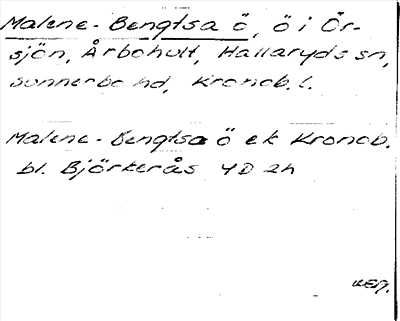 Malene-Bengtsa ö, ö i Ör-
sjön, Årbohult, Hallaryds sn,
Sunnerbo hd, Kronob. l.
Malene-Bengtsa ö ek Kronob.
bl. Björkerås 4D 2h